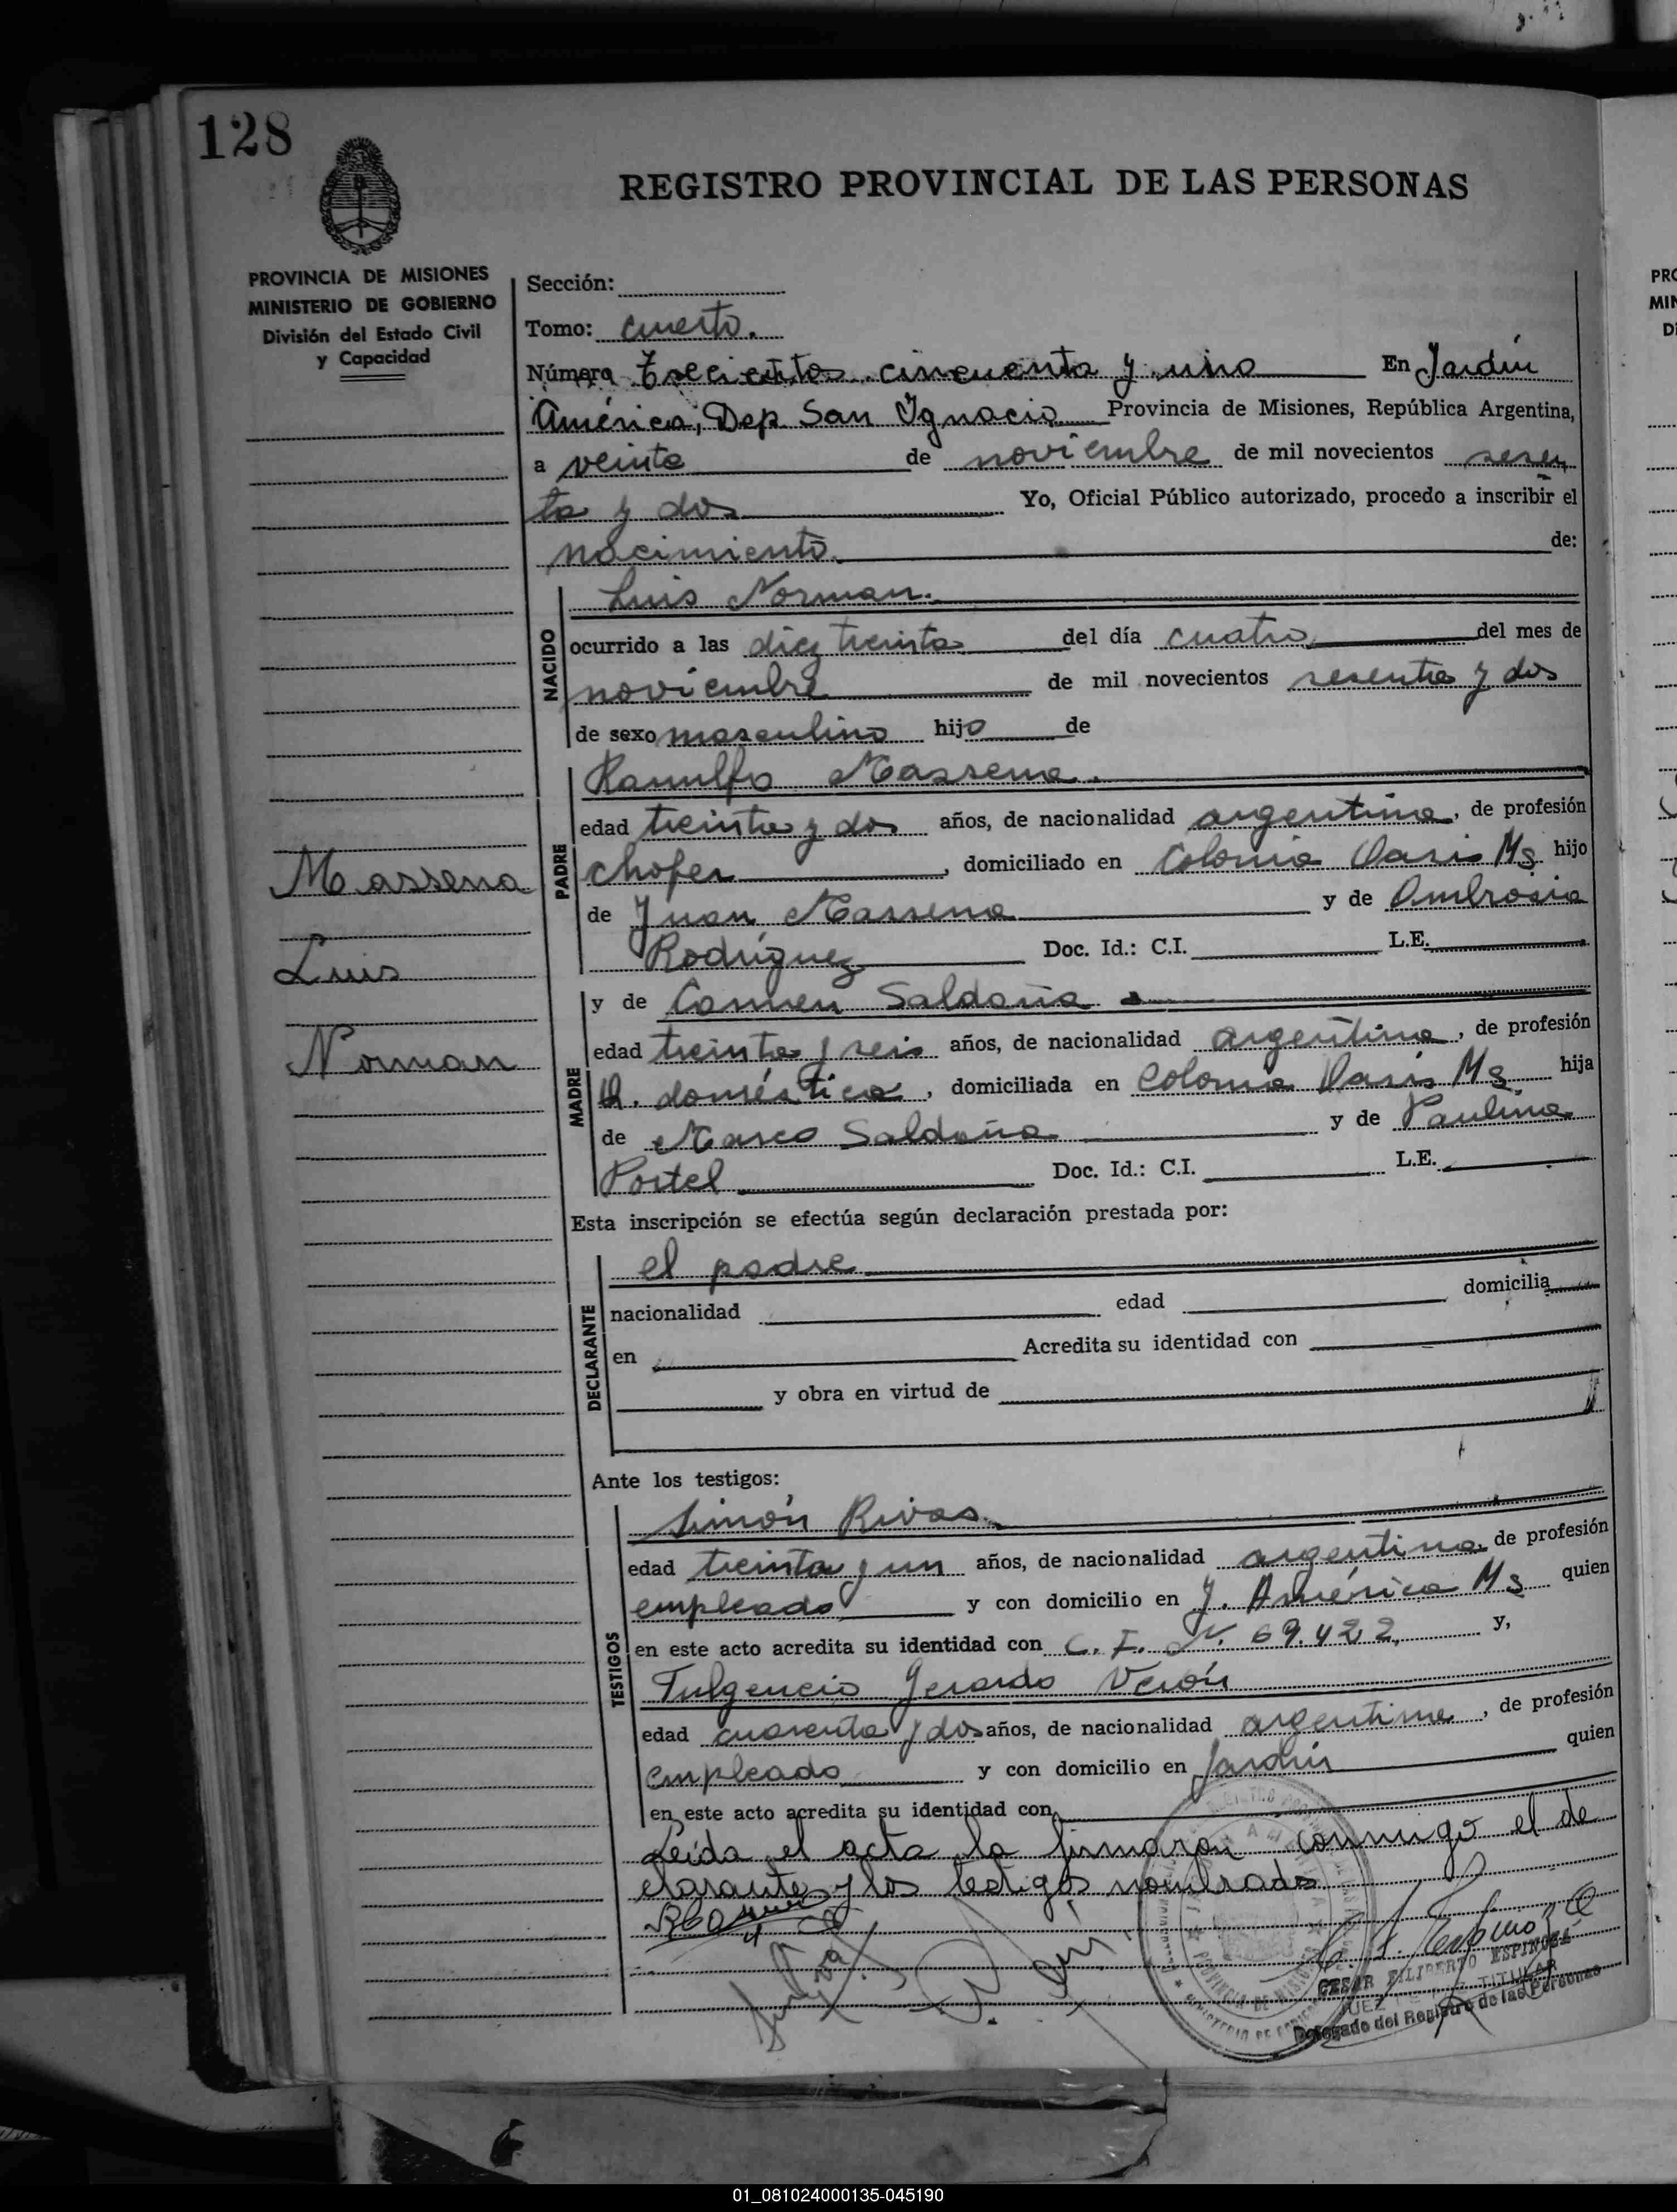 128
REGISTRO PROVINCIAL DE LAS PERSONAS
PROVINCIA DE MISIONES
MINISTERIO DE GOBIERNO
División del Estado Civil
y Capacidad
Sección:
Tomo: cuarto.
Número Trescientos cincuenta y uno En Jardín
América, Dep. San Ignacio Provincia de Misiones, República Argentina,
a veinte de noviembre de mil novecientos sesen
ta y dos Yo, Oficial Público autorizado, procedo a inscribir el
nacimiento. de:
NACIDO
Luis Norman.
ocurrido a las diez treinta del día cuatro del mes de
noviembre de mil novecientos sesenta y dos
de sexo masculino hijo de
PADRE
Ranulfo Massena.
edad treinta y dos años, de nacionalidad argentina, de profesión
chofer, domiciliado en Colonia Oasis Ms hijo
de Juan Massena y de Ambrosia
Rodríguez Doc. Id.: C.I. L.E.
Massena
Luis
Norman
MADRE
y de Carmen Saldaña
edad treinta y seis años, de nacionalidad argentina, de profesión
Q. doméstica, domiciliada en Colonia Oasis Ms hija
de Marco Saldaña y de Paulina
Portel Doc. Id.: C.I. L.E.
Esta inscripción se efectúa según declaración prestada por:
DECLARANTE
el padre
nacionalidad edad domicilia
en Acredita su identidad con
y obra en virtud de
Ante los testigos:
TESTIGOS
Simón Rivas.
edad treinta y un años, de nacionalidad argentina, de profesión
empleado y con domicilio en J. América Ms quien
en este acto acredita su identidad con C. I. N. 69.422, y,
Fulgencio Gerardo Verón
edad cuarenta y dos años, de nacionalidad argentina, de profesión
empleado y con domicilio en Jardín quien
en este acto acredita su identidad con
Leída el acta la firmaron conmigo el de
clarante y los testigos nombrados
CESAR FILIBERTO ESPINOZA
JUEZ DE PAZ TITULAR
Delegado del Registro de las Personas
PROVINCIA DE MISIONES
01_081024000135-045190